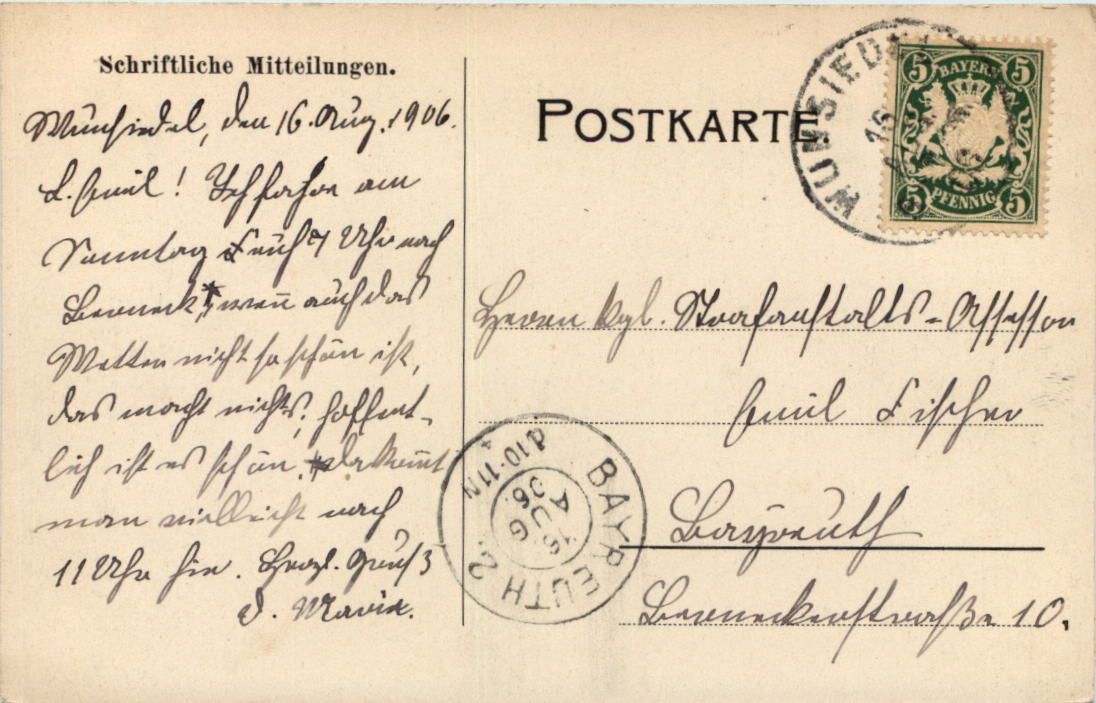 Schriftliche Mitteilungen.
Wunsiedel, den 16. Aug. 1906.
L. Emil! Ich fahre am
Sonntag Früh 7 Uhr nach
Berneck, wenn auch das
Wetter nicht so schön ist,
das macht nichts, hoffent-
lich ist es schön. Da kommt
man vielleicht nach
11 Uhr hin. Herzl. Gruß
d. Marie.
POSTKARTE
WUNSIEDEL
16
5 BAYERN 5
5 PFENNIG 5
Herrn kgl. Strafanstalts-Assessor
Emil Fischer
Bayreuth
Berneckerstraße 10.
BAYREUTH 2.
16
AUG
06
10-11N